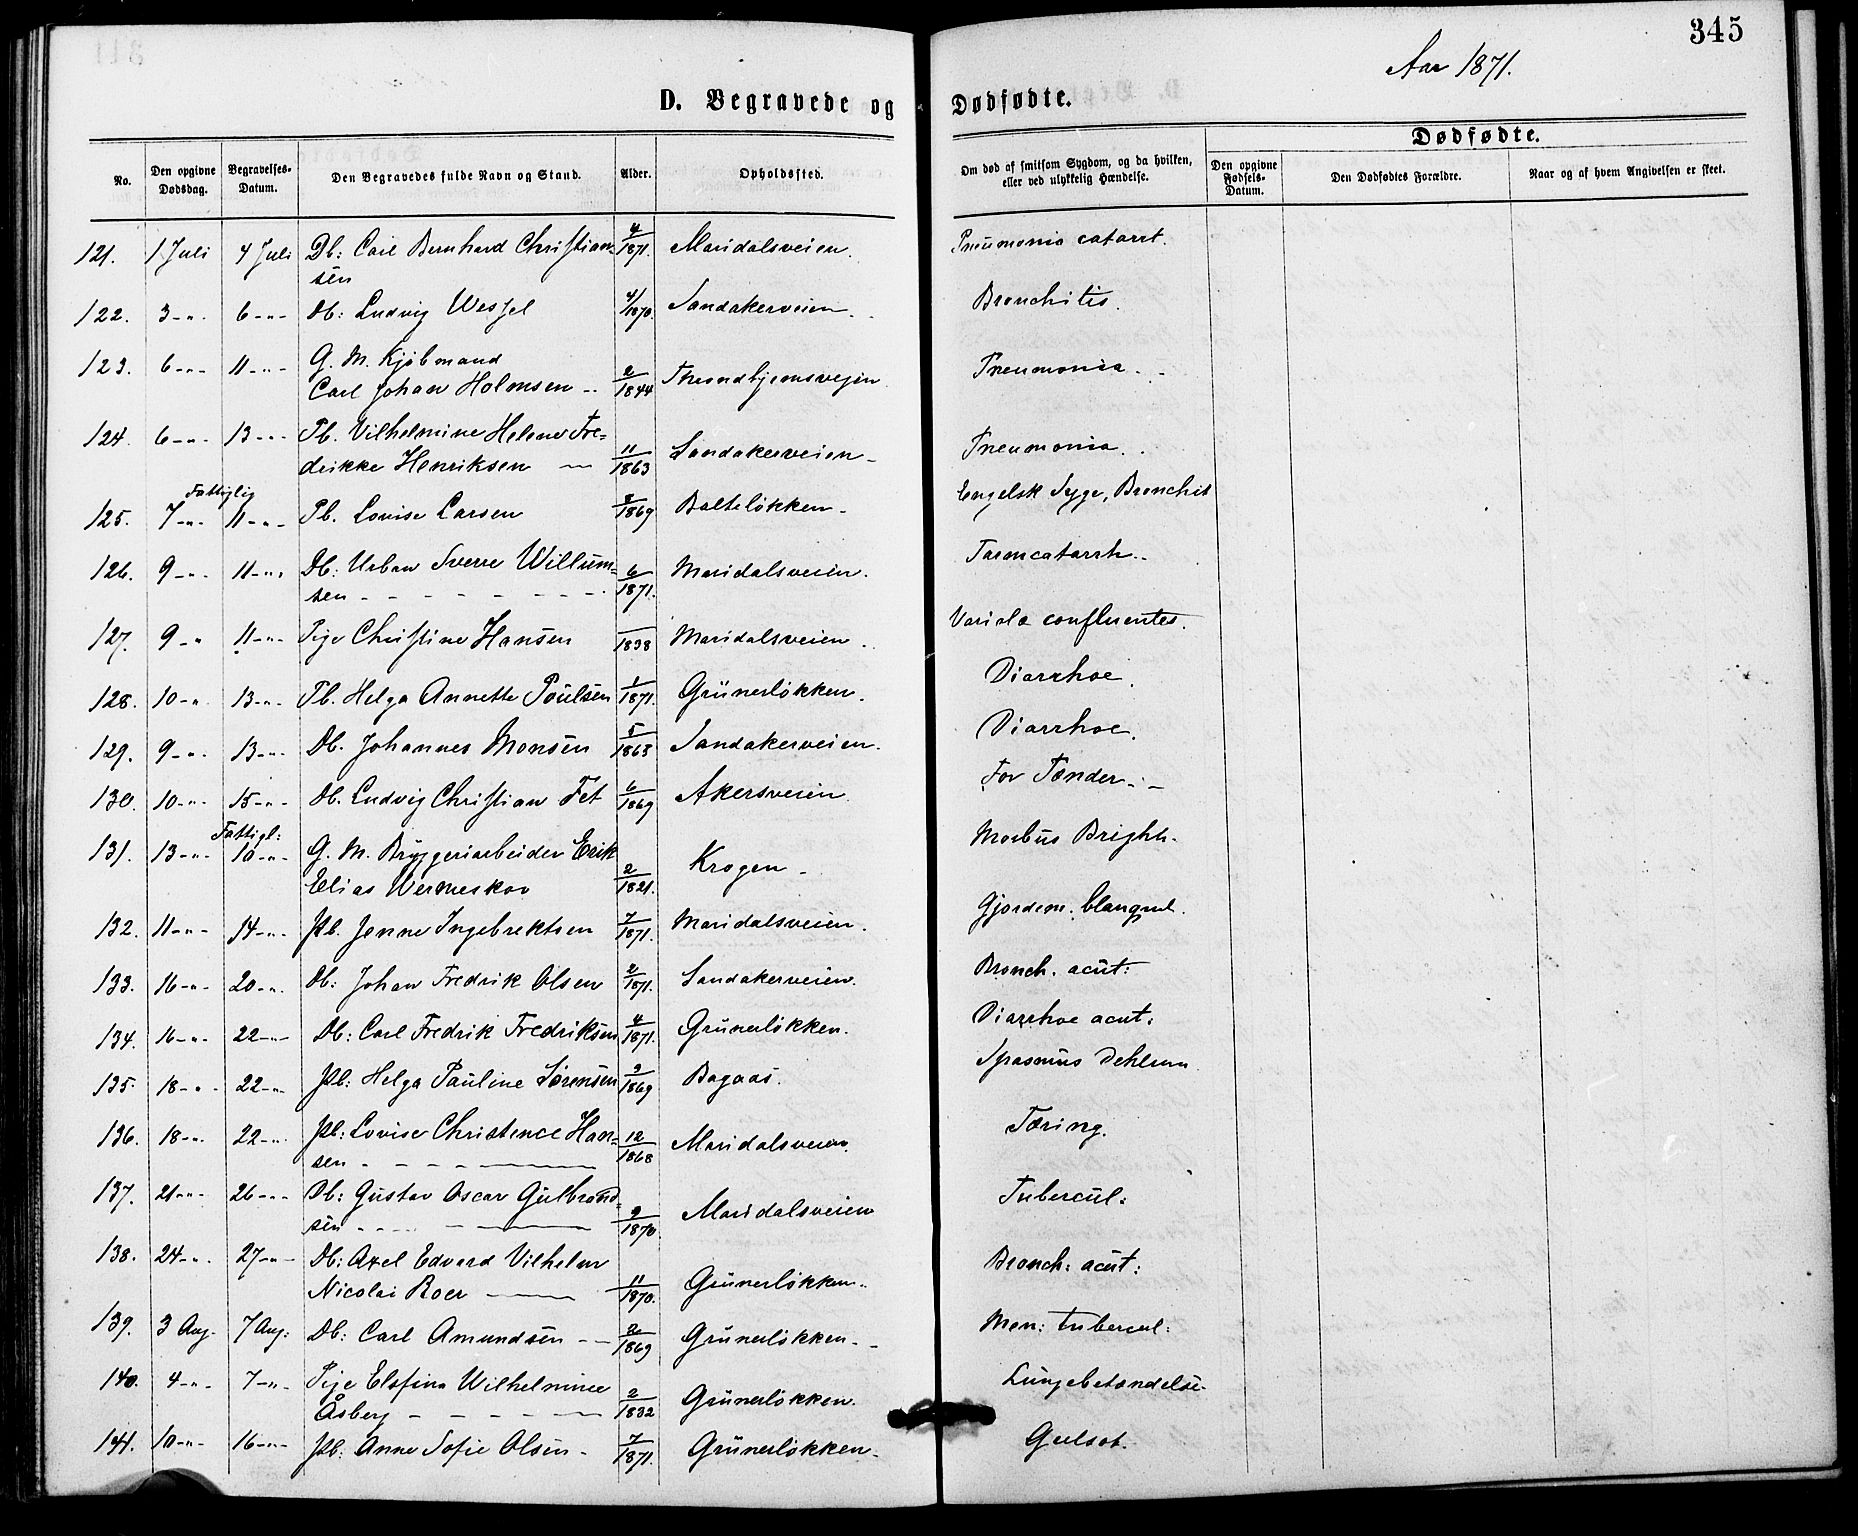 345
Aar 1871.
D. Begravede og Dødfødte.
Dødfødte.
No.
Den opgivne Dødsdag.
Begravelses-Datum.
Den Begravedes fulde Navn og Stand.
Alder.
Opholdssted.
Om død af smitsom Sygdom, og da hvilken, eller ved ulykkelig Hændelse.
Den opgivne Fødsels-Datum.
Den Dødfødtes Forældre.
Naar og af hvem Angivelsen er skeet.
121. 1 Juli 4 Juli Db: Carl Bernhard Christian= 4/1871. Maridalsveien. Pneumonia catarrt.
sen
122. 3-"- 6-"- Db: Ludvig Wessel 4/1870. Sandakerveien. Bronchitis.
123. 6-"- 11-"- G. M. Kjøbmand
Carl Johan Holmsen 2/1844 Throndhjemsvejen. Pneumonia.
124. 6-"- 13-"- Pb. Vilhelmine Helene Fre=
drikke Henriksen 11/1863 Sandakerveien Pneumonia.
Fattiglig
125. 7-"- 11-"- Pb. Lovise Larsen /1869 Balteløkken Engelsk Syge, Bronchit
126. 9-"- 11-"- Db: Urban Sverre Willum= 6/1871. Maridalsveien. Tarmcatarrh.
sen
127. 9-" 11-"- Pige Christine Hansen /1838 Maridalsveien. Variola confluentes.
128. 10-" 13-"- Pb. Helga Annette Poulsen 1/1871. Grünerløkken. Diarrhoe.
129. 9-"- 13-"- Db. Johannes Monsen 5/1863 Sandakerveien. Diarrhoe.
130. 10-"- 15-"- Db. Ludvig Christian Fet 6/1869 Akersveien. For Tænder.
Fattigl:
131. 13-"- 10-"- G. M. Bryggeriarbeider Erik Morbus Brighti.
Elias Wermeskov 2/1821. Krogen
132. 11-"- 14-"- Pb. Jenne Ingebrektsen 7/1871. Maridalsveien. Gjordem.
133. 16-"- 20-"- Db: Johan Fredrik Olsen 2/1871. Sandakerveien. Bronch. acut:
134. 16-"- 22-"- Db: Carl Fredrik Fredriksen 4/1871. Grünerløkken. Diarrhoe acut:
135. 18-"- 22-"- Pb: Helga Pauline Sørensen /1869 Bagaas. Spasmus
136. 18-"- 22-"- Pb: Lovise Christence Han= 12/1868 Maridalsveien. Tæring.
sen
137. 21-"- 26-"- Db: Gustav Oscar Gulbrand= Tubercul:
sen 9/1870 Maridalsveien
138. 24-"- 27-"- Db: Axel Edvard Vilhelm Bronch: acut:
Nicolai Roer 11/1870. Grünerløkken.
139. 3 Aug. 7 Aug: Db: Carl Amundsen 2/1869 Grünerløkken. Men: tubercul:
140. 4-"- 7-"- Pige Elefina Wilhelmine Lungebetændelse.
Åsberg 2/1832 Grünerløkken.
141. 10-"- 16-"- Pb: Anne Sofie Olsen 7/1871. Grünerløkken. Gulsot.